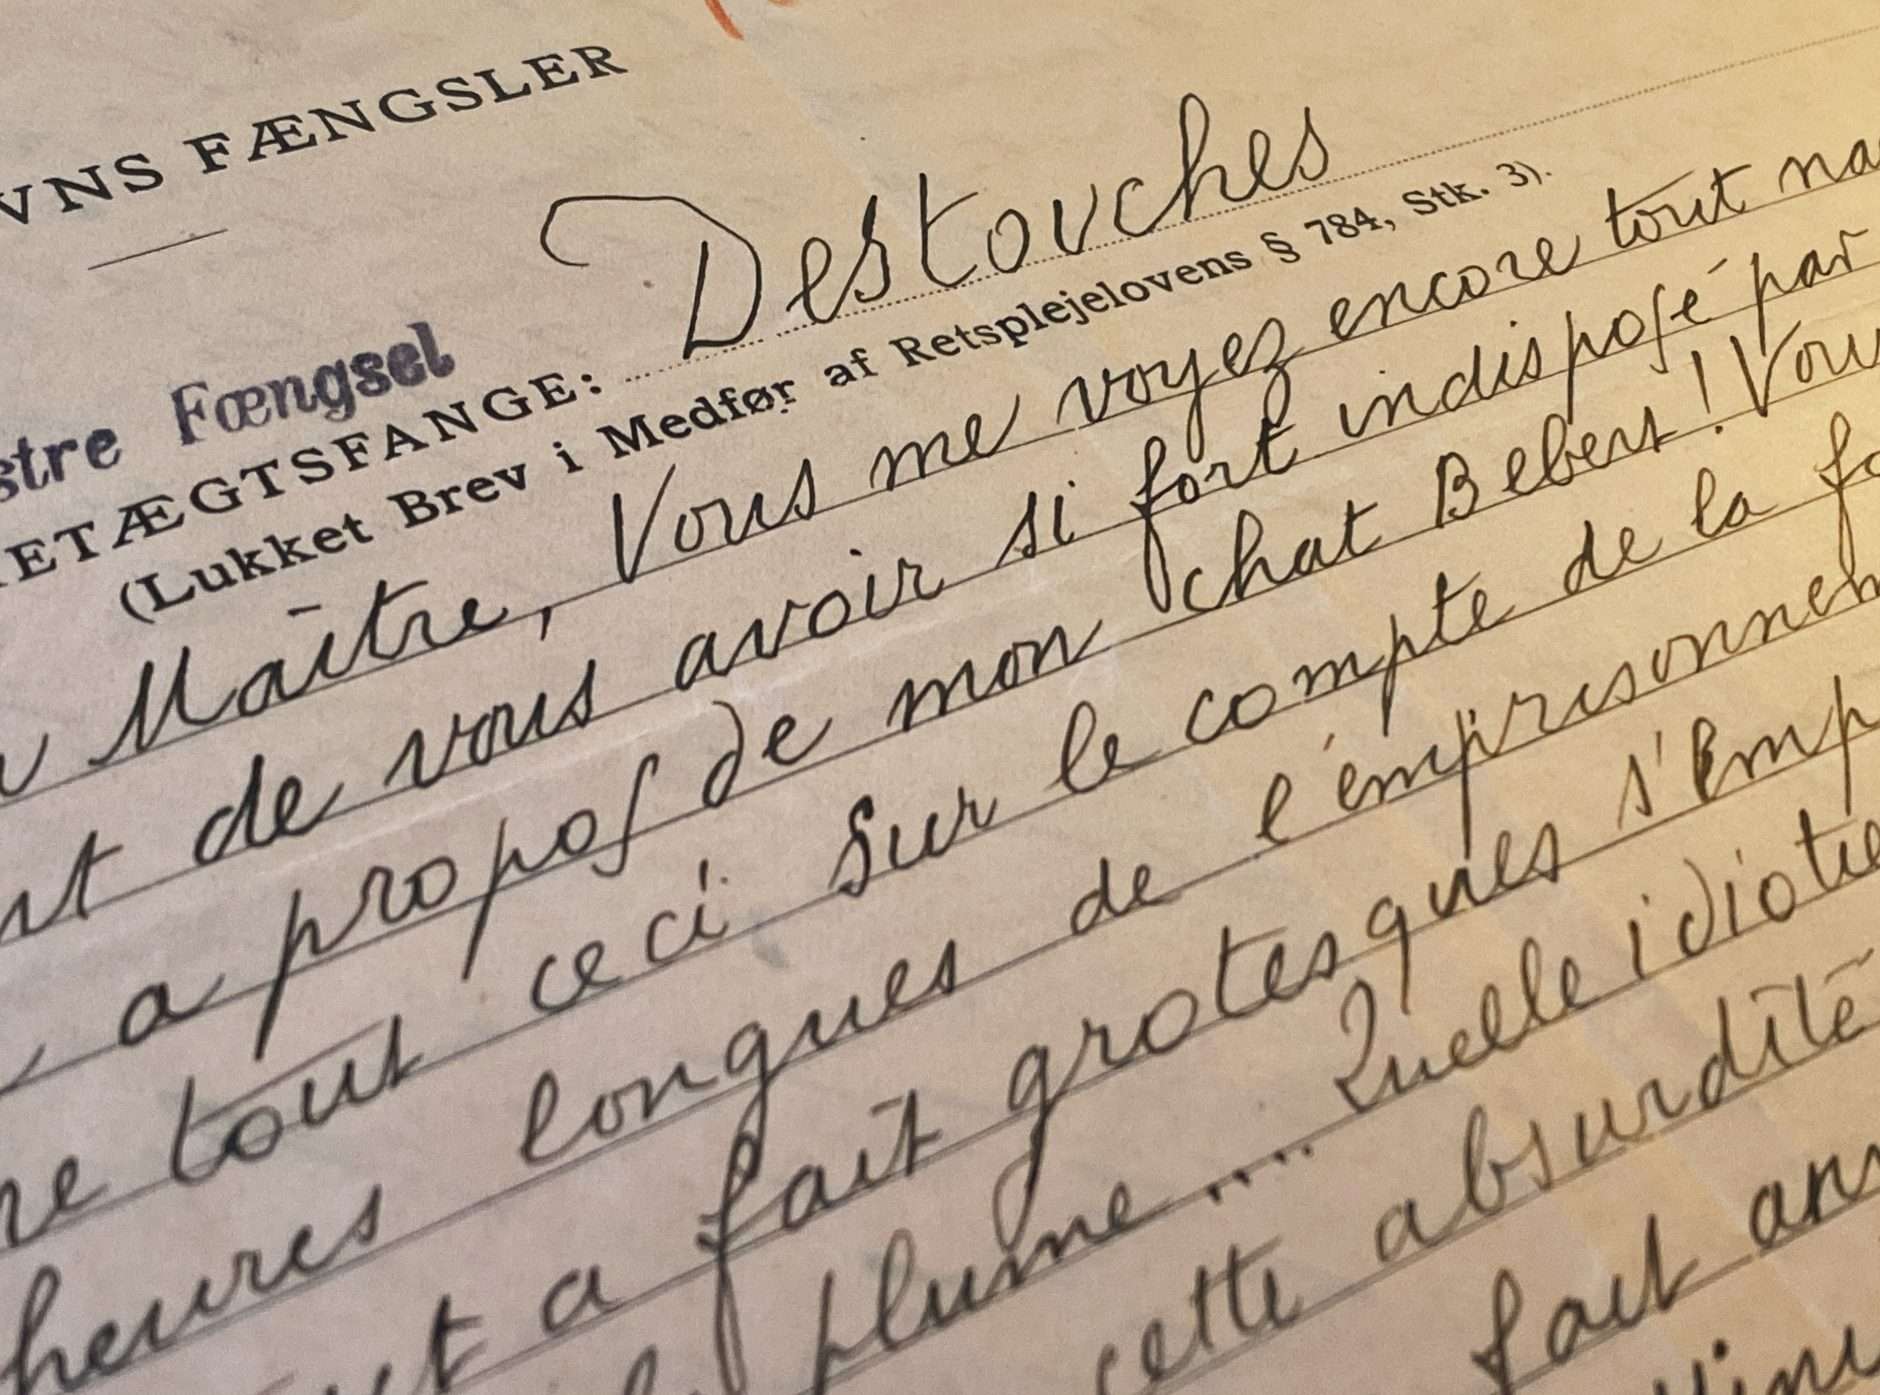 VNS FÆNGSLER
stre Fængsel
ETÆGTSFANGE: Destouches
(Lukket Brev i Medfør af Retsplejelovens § 784, Stk. 3).
Maître, Vous me voyez encore tout na
nt de vous avoir si fort indisposé par
a propos de mon chat Bebert! Vou
tout ceci sur le compte de la fa
heures longues de l'emprisonnem
t a fait grotesques s'emp
plume.... Quelle idiotie
cette absurdité
fait an